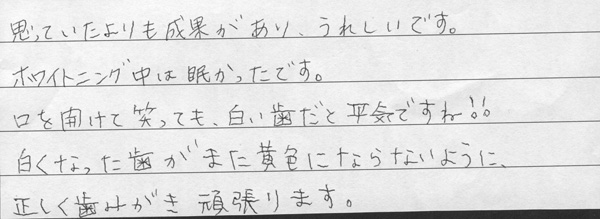 思っていたよりも成果があり、うれしいです。
ホワイトニング中は眠かったです。
口を開けて笑っても、白い歯だと平気ですね!!
白くなった歯がまた黄色にならないように、
正しく歯みがき頑張ります。